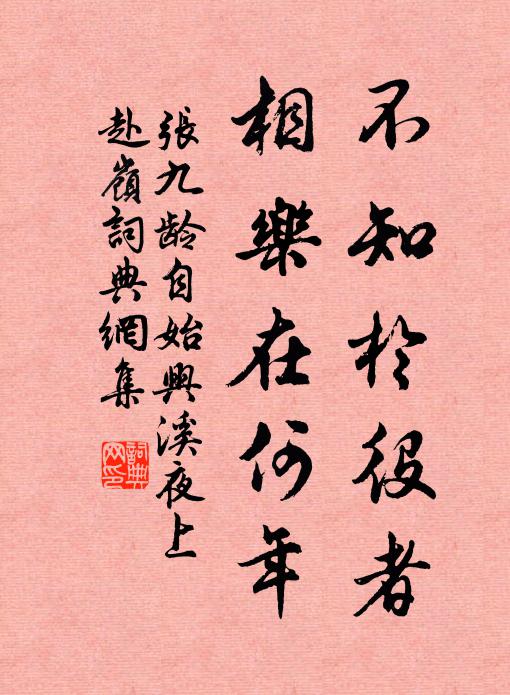 不知於役者
相樂在何年
張九龄自始興溪夜上
赴嶺詞典網集
詞典
网印